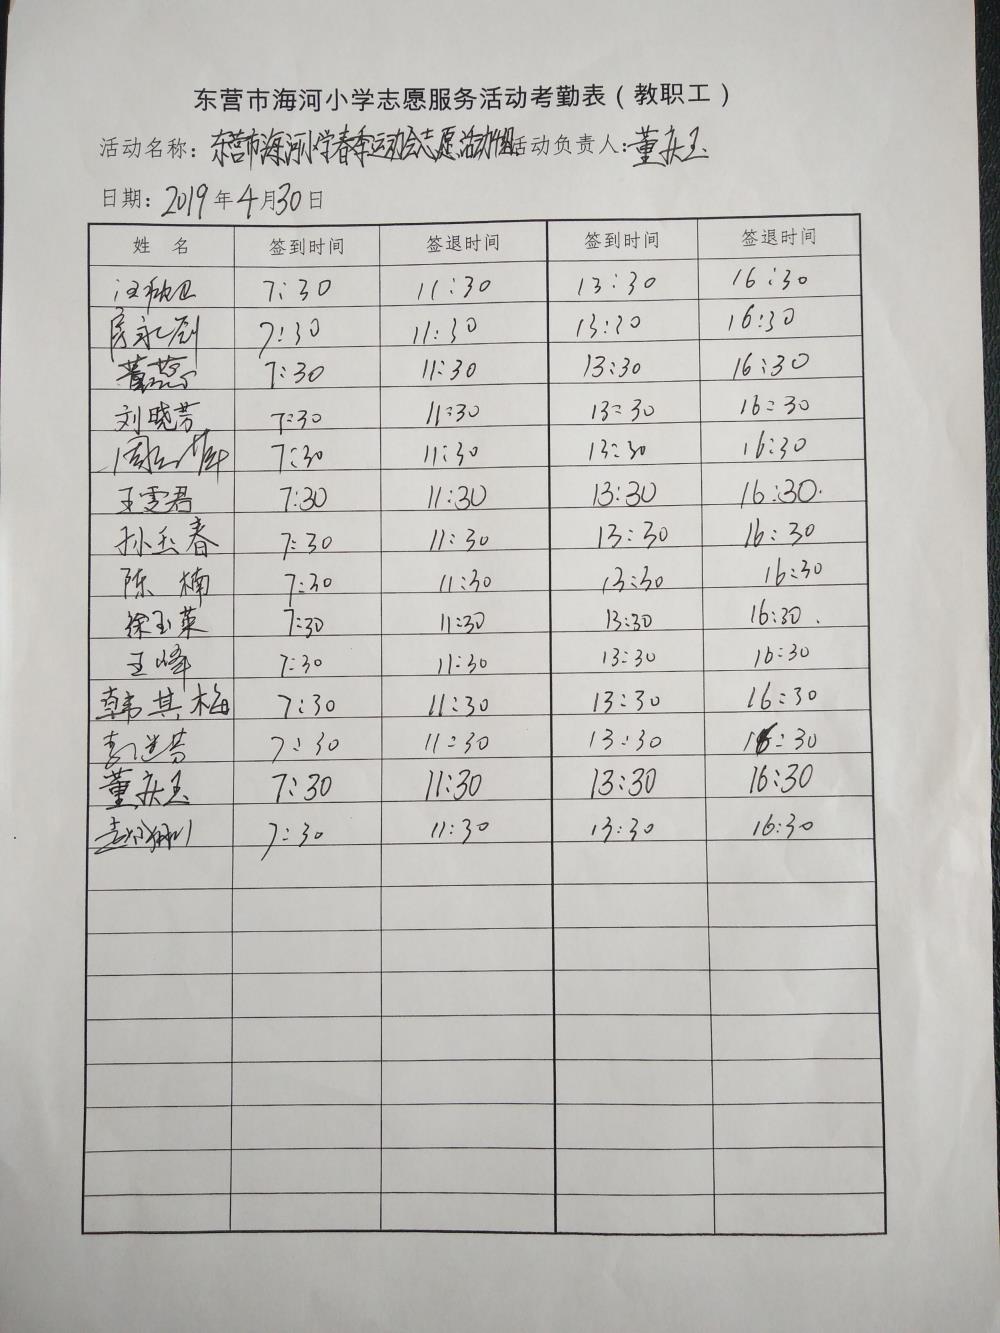 东营市海河小学志愿服务活动考勤表（教职工）
活动名称：东营市海河小学春季运动会志愿活动 活动负责人：董庆玉
日期：2019年4月30日
姓 名 签到时间 签退时间 签到时间 签退时间
7:30 11:30 13:30 16:30
房永刚 7:30 11:30 13:30 16:30
董蕊 7:30 11:30 13:30 16:30
刘晓芳 7:30 11:30 13:30 16:30
7:30 11:30 13:30 16:30
王雯君 7:30 11:30 13:30 16:30.
孙玉春 7:30 11:30 13:30 16:30
陈楠 7:30 11:30 13:30 16:30
徐玉莱 7:30 11:30 13:30 16:30.
王峰 7:30 11:30 13:30 16:30
韩其梅 7:30 11:30 13:30 16:30
7:30 11:30 13:30 16:30
董庆玉 7:30 11:30 13:30 16:30
7:30 11:30 13:30 16:30